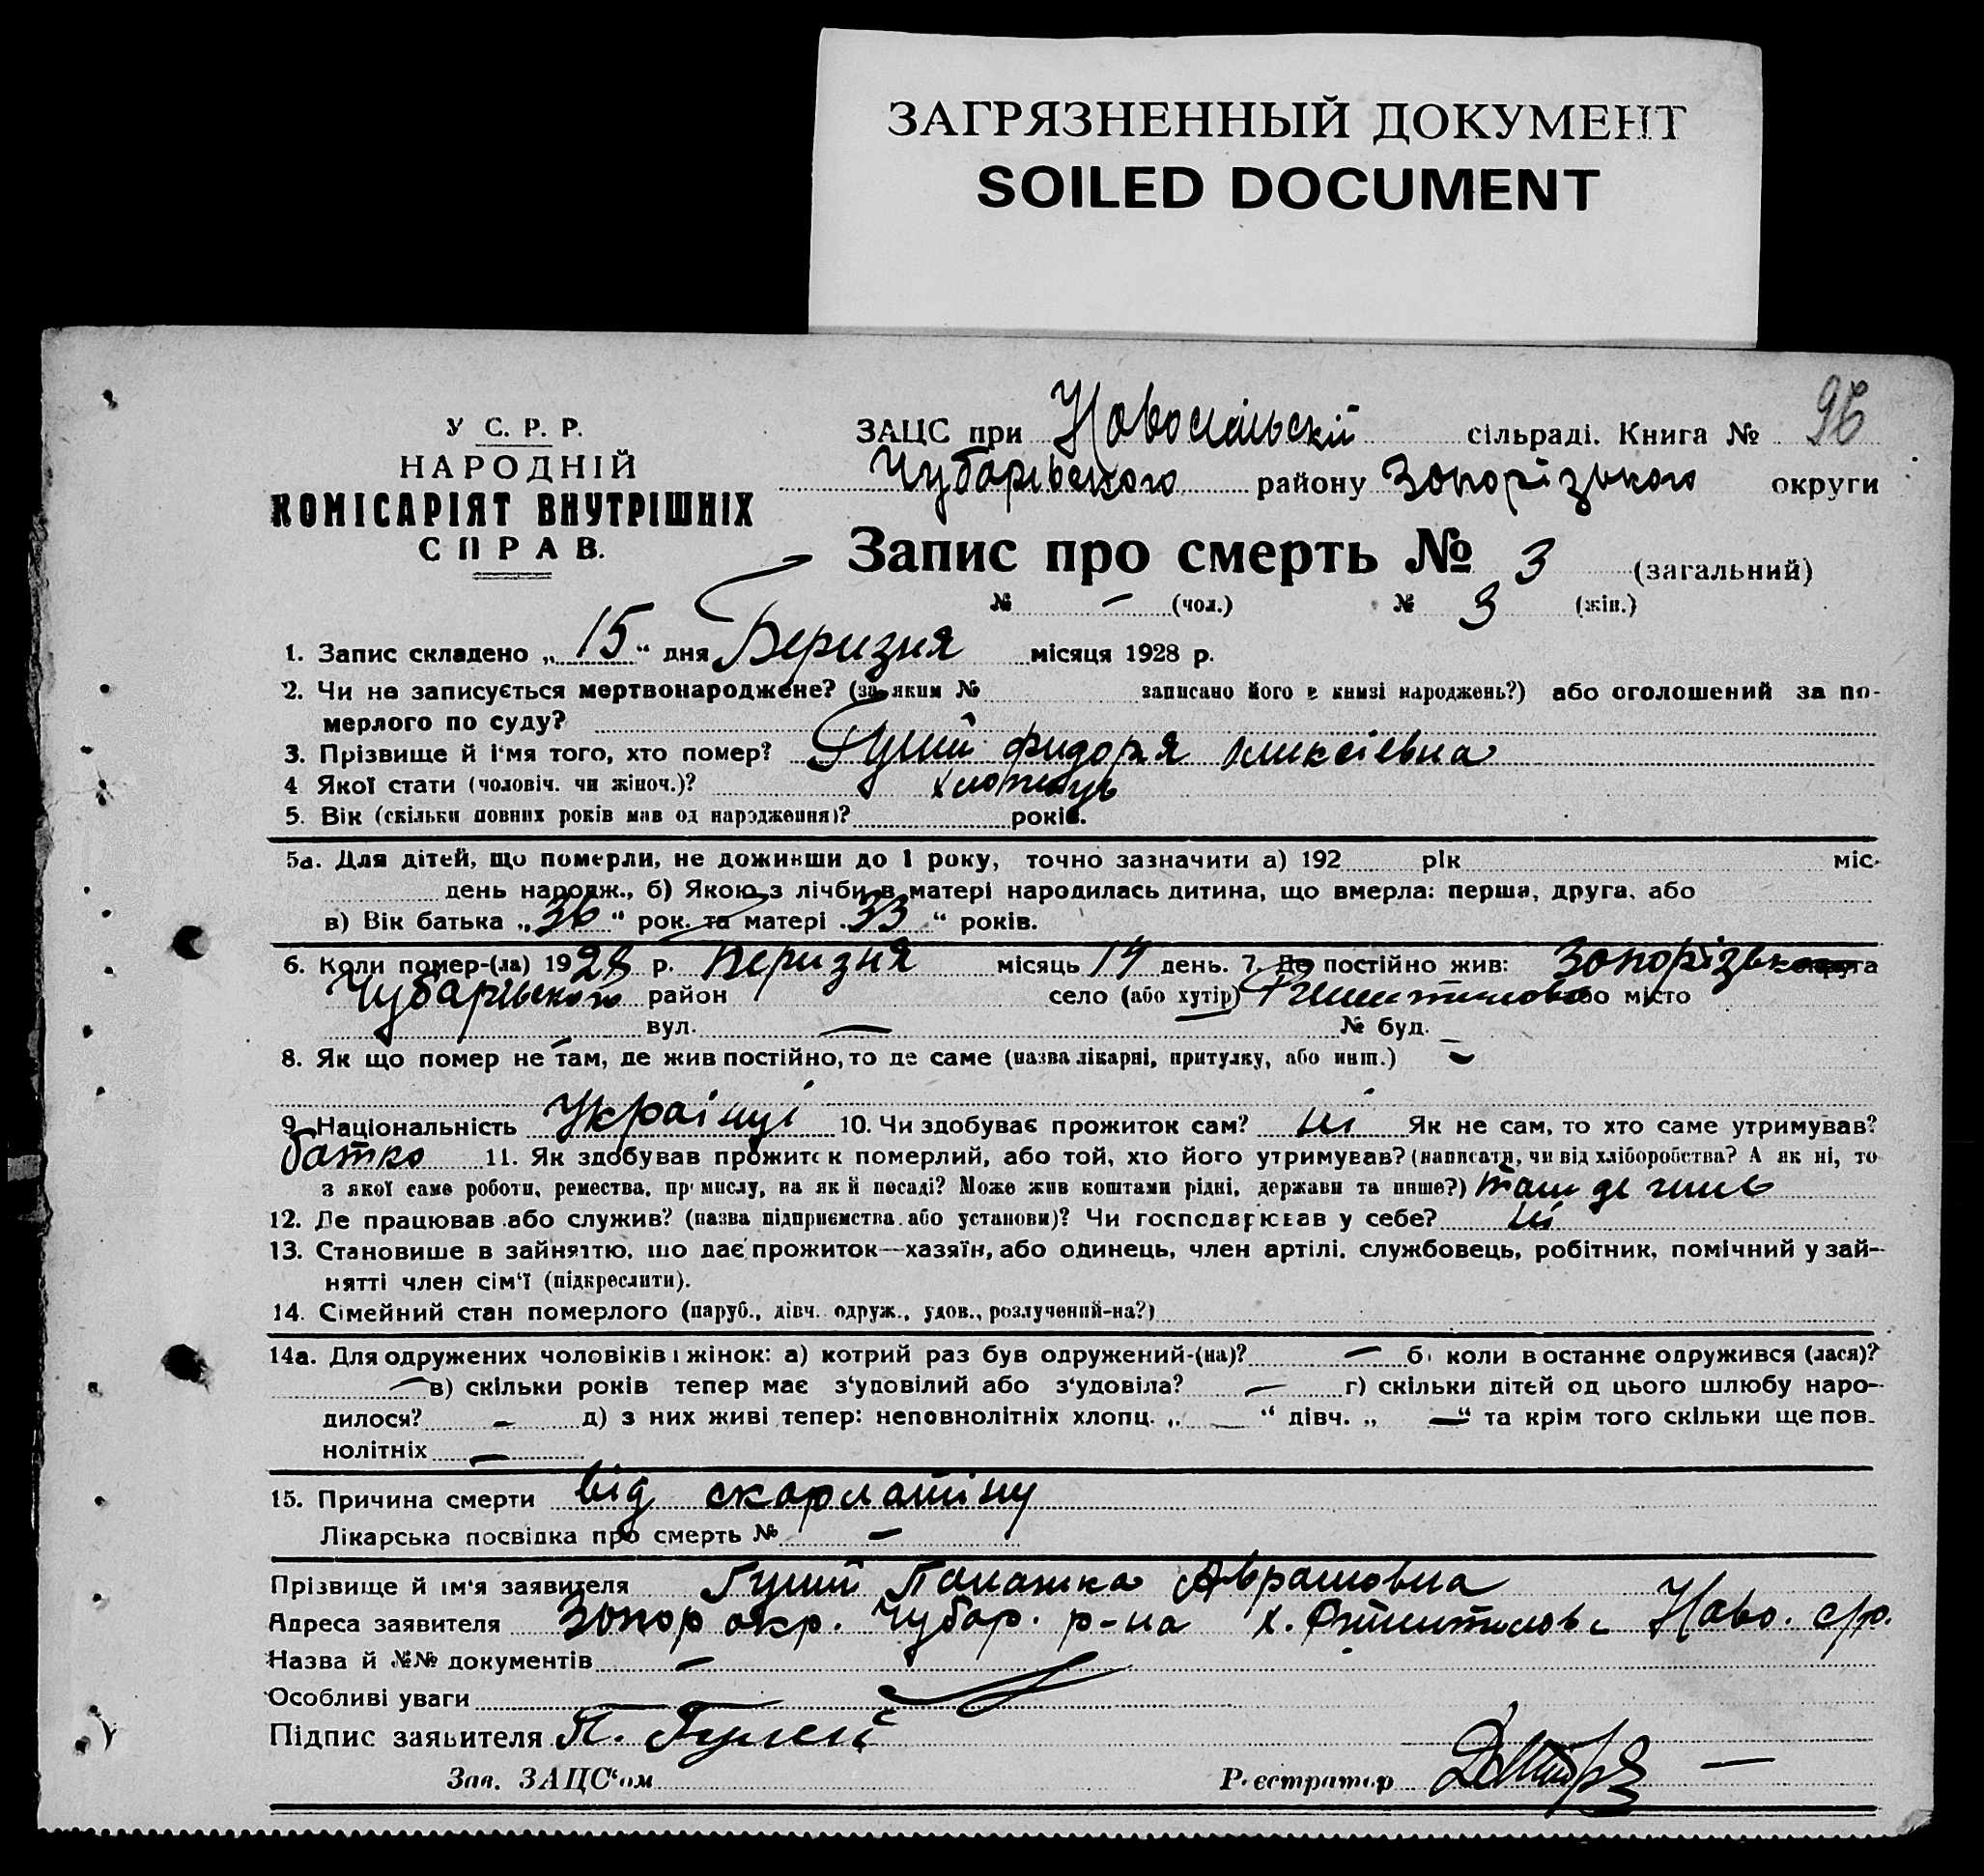 ЗАГРЯЗНЕННЫЙ ДОКУМЕНТ
SOILED DOCUMENT
У С. Р. Р.
НАРОДНІЙ
КОМІСАРІЯТ ВНУТРІШНІХ
СПРАВ.
ЗАЦС при Новосільскій сільраді. Книга № 96
Чубарівского району Зопорізького округи
Запис про смерть № 3 (загальний)
№ — (чол.) № 3 (жін.)
1. Запис складено „15“ дня Беризня місяця 1928 р.
2. Чи не записується мертвонароджене? (за яким № записано його в книзі народжень?) або оголошений за по-
мерлого по суду?
3. Прізвище й і'мя того, хто помер? Гуший Фидоря Оликсіевна
4 Якої стати (чоловіч. чи жіноч.)?
5. Вік (скільки повних років мав од народження)? років.
5а. Для дітей, що померли, не доживши до 1 року, точно зазначити а) 192 рік міс.
день народж., б) Якою з лічби в матері народилась дитина, що вмерла: перша, друга, або
в) Вік батька „36“ рок. та матері „33“ років.
6. Коли помер-(ла) 1928 р. Беризня місяць 14 день. 7. Де постійно жив: Зопорізько округа
Чубарівского район село (або хутір) або місто
вул. — № буд. —
8. Як що помер не там, де жив постійно, то де саме (назва лікарні, притулку, або инш.) —
9. Національність Украінці 10. Чи здобуває прожиток сам? ні Як не сам, то хто саме утримував?
батко 11. Як здобував прожиток померлий, або той, хто його утримував? (написати, чи від хліборобства? А як ні, то
з якої саме роботи, ремества, промислу, на якій посаді? Може жив коштами рідні, держави та инше?)
12. Де працював або служив? (назва підприємства або установи)? Чи господарював у себе? ні
13. Становище в зайняттю, що дає прожиток—хазяїн, або одинець, член артілі, службовець, робітник, помічний у зай-
нятті член сім'ї (підкреслити).
14. Сімейний стан померлого (паруб., дівч. одруж., удов., розлучений-на?)
14а. Для одружених чоловіків і жінок: а) котрий раз був одружений-(на)? — б) коли востаннє одружився (лася)?
— в) скільки років тепер має з'удовілий або з'удовіла? — г) скільки дітей од цього шлюбу наро-
дилося? — д) з них живі тепер: неповнолітніх хлопц. „ — “ дівч. „ — “ та крім того скільки ще пов-
нолітніх —
15. Причина смерти від скарлатіну
Лікарська посвідка про смерть № —
Прізвище й ім'я заявителя Гуший Панажка Аврамовна
Адреса заявителя Зопор окр. Чубар. р-на х. Ново. с/р.
Назва й №№ документів —
Особливі уваги
Підпис заявителя П. Гуший
Зав. ЗАЦС'ом Реєстратор